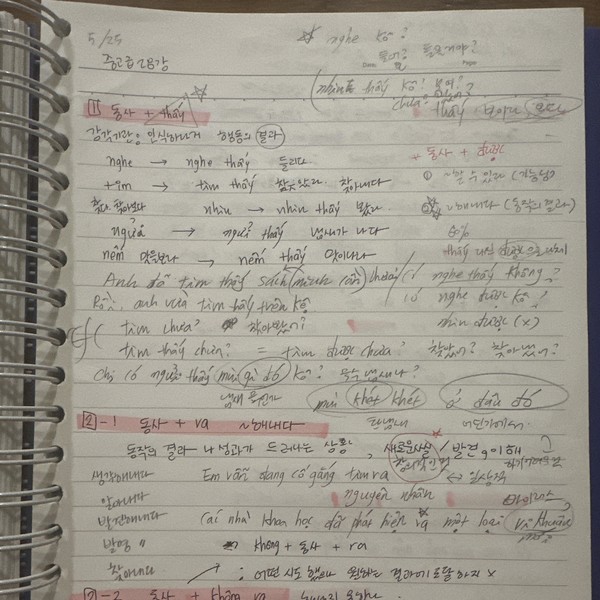 5/25
☆ nghe ko?
중고급 28강
Date Page
(nhìn thấy ko?
1 동사 + thấy
감각기관으로 인식하거나 행동의 결과
nghe → nghe thấy 들리다
* 동사 + được
tìm → tìm thấy 찾았다. 찾아내다
① ~할 수 있다 (가능성)
nhìn → nhìn thấy 봤다
② ~해내다 (동작의 결과)
ngửi → ngửi thấy 냄새가 나다
60%
nếm 맛을보다 → nếm thấy 맛이나다
thấy 대신 được으로 대체
Anh đã tìm thấy sách (mình cần) chưa?
có nghe thấy không?
Rồi, anh vừa tìm thấy trên kệ
có nghe được ko?
tìm chưa? 찾아봤어?
nhìn được (x)
tìm thấy chưa? = tìm được chưa? 찾았어? 찾아냈어?
Chị có ngửi thấy mùi gì đó ko? 무슨 냄새나?
mùi khét khét ở đâu đó
탄냄새 어딘가에서
2-1 동사 + ra ~해내다
동작의 결과나 성과가 드러나는 상황, 새로운사실 / 발견이해
생각해내다 Em vẫn đang cố gắng tìm ra
nguyên nhân
알아내다
바이러스
발견해내다 Các nhà khoa học đã phát hiện ra một loại vi khuẩn
발명 〃 không +동사 + ra
찾아내다 : 어떤 시도 했으나 원하는 결과에 도달하지 x
2-2 동사 + không ra